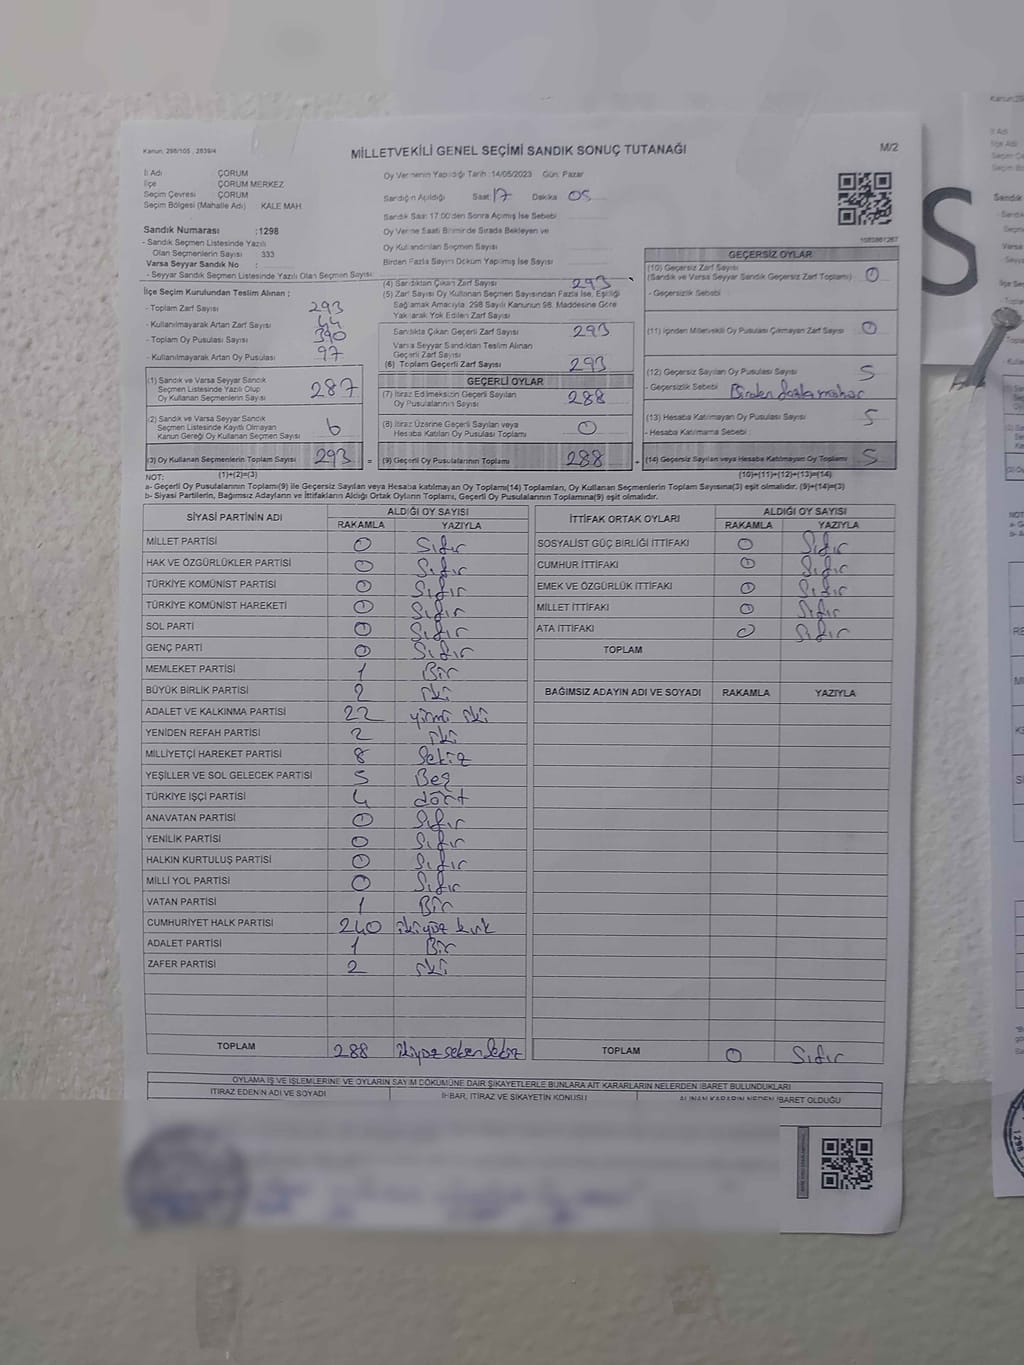 Kanun, 298/105 , 2839/4
MİLLETVEKİLİ GENEL SEÇİMİ SANDIK SONUÇ TUTANAĞI
M/2
İl Adı ÇORUM
İlçe ÇORUM MERKEZ
Seçim Çevresi ÇORUM
Seçim Bölgesi (Mahalle Adı) KALE MAH.
Sandık Numarası :1298
- Sandık Seçmen Listesinde Yazılı
Olan Seçmenlerin Sayısı 333
Varsa Seyyar Sandık No :
- Seyyar Sandık Seçmen Listesinde Yazılı Olan Seçmen Sayısı:
Oy Vermenin Yapıldığı Tarih :14/05/2023 Gün: Pazar
Sandığın Açıldığı Saat 17 Dakika 05
Sandık Saat 17.00'den Sonra Açılmış İse Sebebi
Oy Verme Saati Bitiminde Sırada Bekleyen ve
Oy Kullandırılan Seçmen Sayısı
Birden Fazla Sayım Döküm Yapılmış İse Sayısı
1083861267
İlçe Seçim Kurulundan Teslim Alınan ;
- Toplam Zarf Sayısı 293
- Kullanılmayarak Artan Zarf Sayısı 44
- Toplam Oy Pusulası Sayısı 390
- Kullanılmayarak Artan Oy Pusulası 97
(1) Sandık ve Varsa Seyyar Sandık
Seçmen Listesinde Yazılı Olup
Oy Kullanan Seçmenlerin Sayısı 287
(2) Sandık ve Varsa Seyyar Sandık
Seçmen Listesinde Kayıtlı Olmayan
Kanun Gereği Oy Kullanan Seçmen Sayısı 6
(3) Oy Kullanan Seçmenlerin Toplam Sayısı 293 =
(4) Sandıktan Çıkan Zarf Sayısı 293
(5) Zarf Sayısı Oy Kullanan Seçmen Sayısından Fazla İse, Eşitliği
Sağlamak Amacıyla, 298 Sayılı Kanunun 98. Maddesine Göre
Yakılarak Yok Edilen Zarf Sayısı
Sandıkta Çıkan Geçerli Zarf Sayısı 293
Varsa Seyyar Sandıktan Teslim Alınan
Geçerli Zarf Sayısı
(6) Toplam Geçerli Zarf Sayısı 293
GEÇERLİ OYLAR
(7) İtiraz Edilmeksizin Geçerli Sayılan
Oy Pusulalarının Sayısı 288
(8) İtiraz Üzerine Geçerli Sayılan veya
Hesaba Katılan Oy Pusulası Toplamı 0
(9) Geçerli Oy Pusulalarının Toplamı 288 +
GEÇERSİZ OYLAR
(10) Geçersiz Zarf Sayısı
(Sandık ve Varsa Seyyar Sandık Geçersiz Zarf Toplamı) 0
- Geçersizlik Sebebi :
(11) İçinden Milletvekili Oy Pusulası Çıkmayan Zarf Sayısı 0
(12) Geçersiz Sayılan Oy Pusulası Sayısı 5
- Geçersizlik Sebebi Birden fazla mühür
(13) Hesaba Katılmayan Oy Pusulası Sayısı 5
- Hesaba Katılmama Sebebi :
(14) Geçersiz Sayılan veya Hesaba Katılmayan Oy Toplamı 5
NOT: (1)+(2)=(3) (10)+(11)+(12)+(13)=(14)
a- Geçerli Oy Pusulalarının Toplamı(9) ile Geçersiz Sayılan veya Hesaba katılmayan Oy Toplamı(14) Toplamları, Oy Kullanan Seçmenlerin Toplam Sayısına(3) eşit olmalıdır. (9)+(14)=(3)
b- Siyasi Partilerin, Bağımsız Adayların ve İttifakların Aldığı Ortak Oyların Toplamı, Geçerli Oy Pusulalarının Toplamına(9) eşit olmalıdır.
SİYASİ PARTİNİN ADI ALDIĞI OY SAYISI
RAKAMLA YAZIYLA
MİLLET PARTİSİ 0 Sıfır
HAK VE ÖZGÜRLÜKLER PARTİSİ 0 Sıfır
TÜRKİYE KOMÜNİST PARTİSİ 0 Sıfır
TÜRKİYE KOMÜNİST HAREKETİ 0 Sıfır
SOL PARTİ 0 Sıfır
GENÇ PARTİ 0 Sıfır
MEMLEKET PARTİSİ 1 Bir
BÜYÜK BİRLİK PARTİSİ 2 iki
ADALET VE KALKINMA PARTİSİ 22 yirmi iki
YENİDEN REFAH PARTİSİ 2 iki
MİLLİYETÇİ HAREKET PARTİSİ 8 Sekiz
YEŞİLLER VE SOL GELECEK PARTİSİ 5 Beş
TÜRKİYE İŞÇİ PARTİSİ 4 dört
ANAVATAN PARTİSİ 0 Sıfır
YENİLİK PARTİSİ 0 Sıfır
HALKIN KURTULUŞ PARTİSİ 0 Sıfır
MİLLİ YOL PARTİSİ 0 Sıfır
VATAN PARTİSİ 1 Bir
CUMHURİYET HALK PARTİSİ 240 ikiyüz kırk
ADALET PARTİSİ 1 Bir
ZAFER PARTİSİ 2 iki
TOPLAM 288 ikiyüz seksen sekiz
İTTİFAK ORTAK OYLARI ALDIĞI OY SAYISI
RAKAMLA YAZIYLA
SOSYALİST GÜÇ BİRLİĞİ İTTİFAKI 0 Sıfır
CUMHUR İTTİFAKI 0 Sıfır
EMEK VE ÖZGÜRLÜK İTTİFAKI 0 Sıfır
MİLLET İTTİFAKI 0 Sıfır
ATA İTTİFAKI 0 Sıfır
TOPLAM
BAĞIMSIZ ADAYIN ADI VE SOYADI RAKAMLA YAZIYLA
TOPLAM 0 Sıfır
OYLAMA İŞ VE İŞLEMLERİNE VE OYLARIN SAYIM DÖKÜMÜNE DAİR ŞİKAYETLERLE BUNLARA AİT KARARLARIN NELERDEN İBARET BULUNDUKLARI
İTİRAZ EDENİN ADI VE SOYADI İHBAR, İTİRAZ VE ŞİKAYETİN KONUSU ALINAN KARARIN NEDEN İBARET OLDUĞU
S